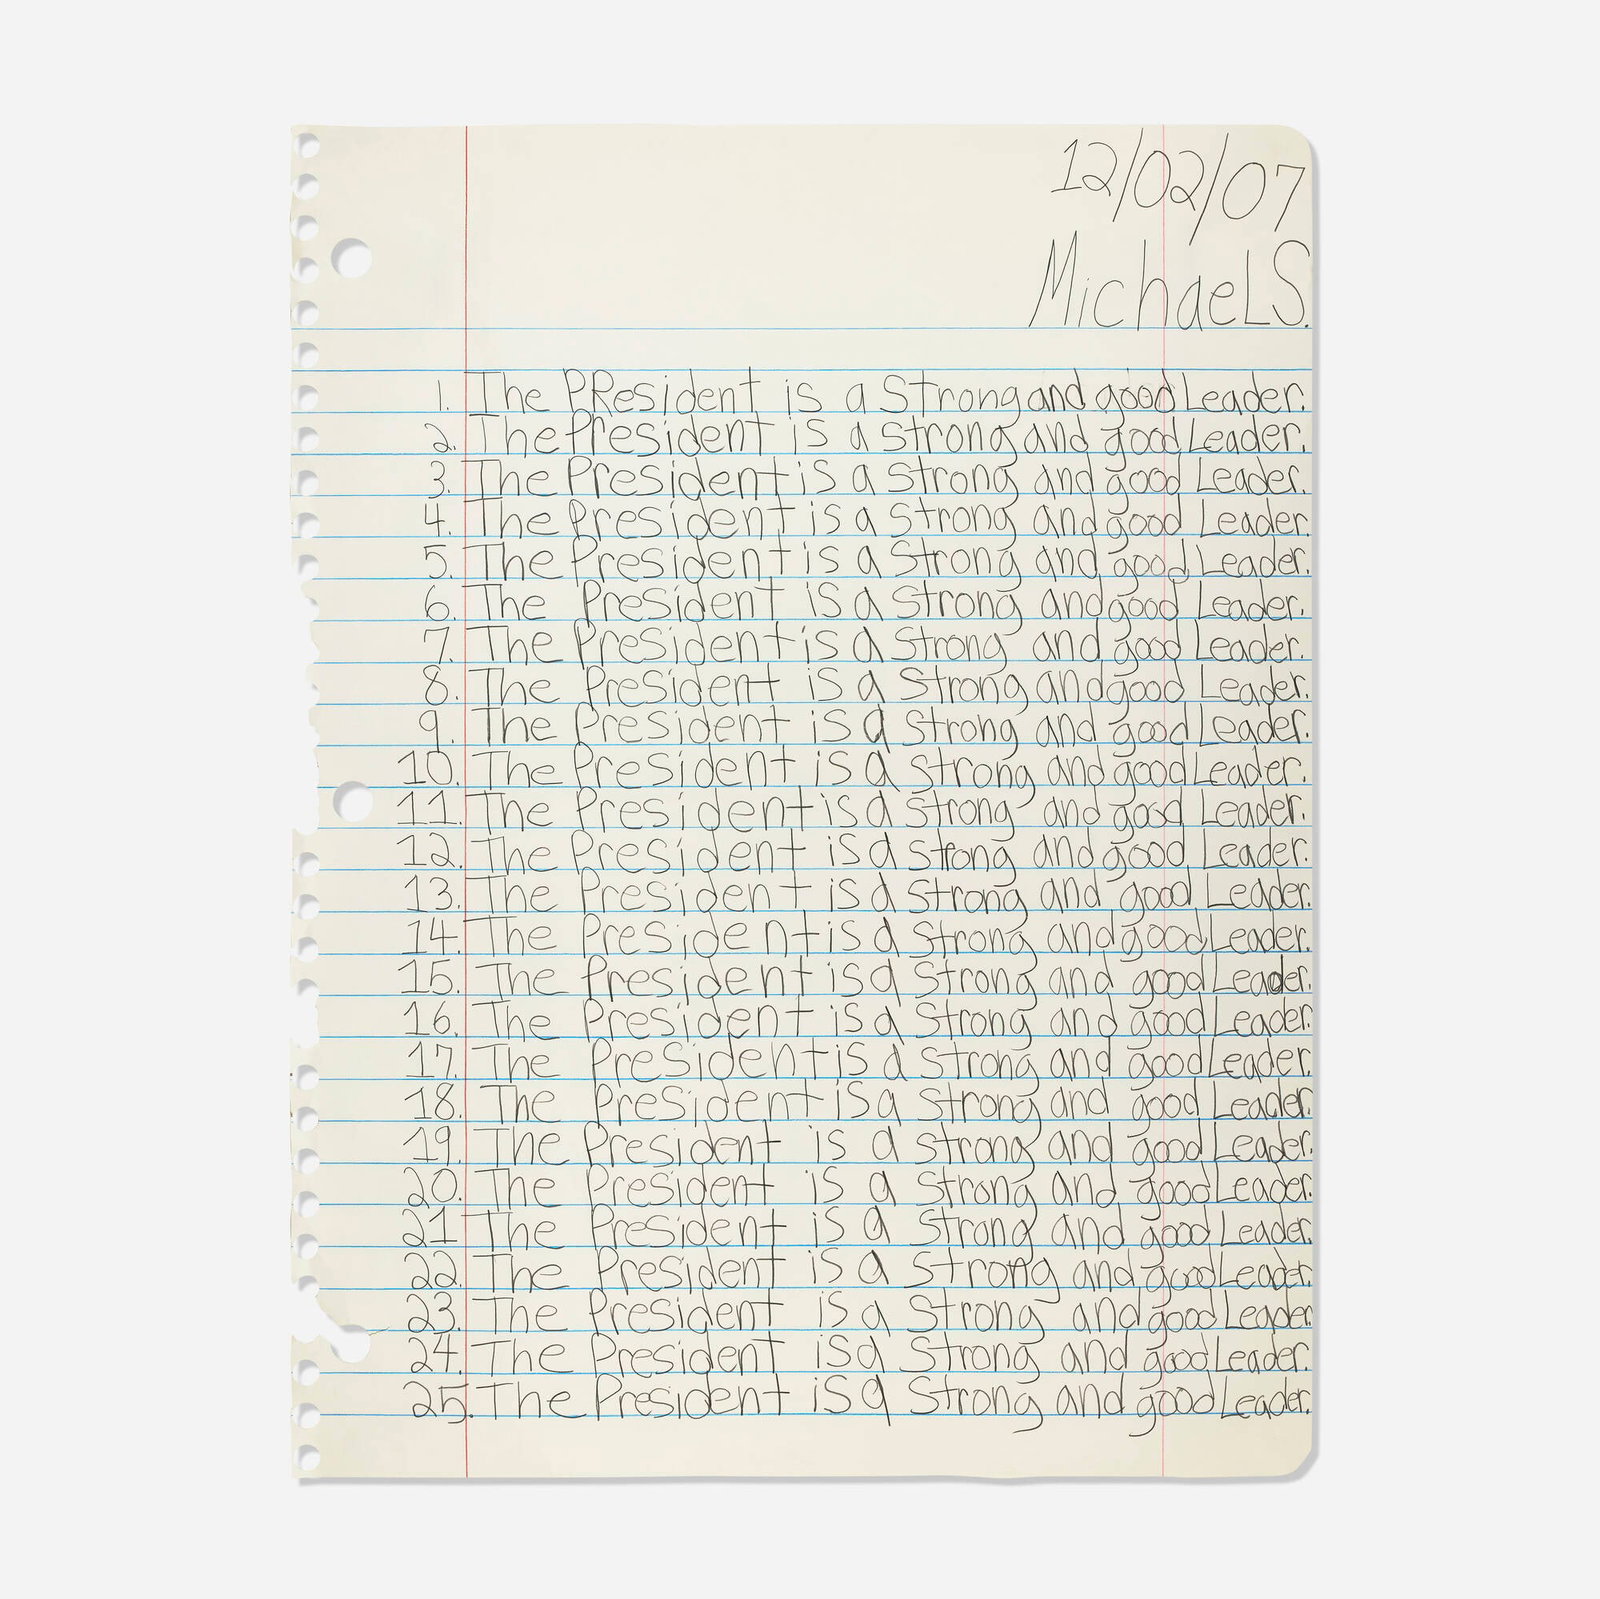 12/02/07
MichaeL S.
1. The PResident is a Strong and good Leader.
2. The President is a strong and good Leader.
3. The President is a strong and good Leader.
4. The President is a strong and good Leader.
5. The President is a strong and good Leader.
6. The President is a strong and good Leader.
7. The President is a strong and good Leader.
8. The President is a strong and good Leader.
9. The President is a strong and good Leader.
10. The President is a strong and good Leader.
11. The President is a strong and good Leader.
12. The President is a strong and good Leader.
13. The President is a strong and good Leader.
14. The President is a strong and good Leader.
15. The President is a strong and good Leader.
16. The President is a strong and good Leader.
17. The President is a strong and good Leader.
18. The President is a strong and good Leader.
19. The President is a strong and good Leader.
20. The President is a strong and good Leader.
21 The President is a strong and good Leader.
22. The President is a strong and good Leader.
23. The President is a strong and good Leader.
24. The President is a strong and good Leader.
25. The President is a strong and good Leader.